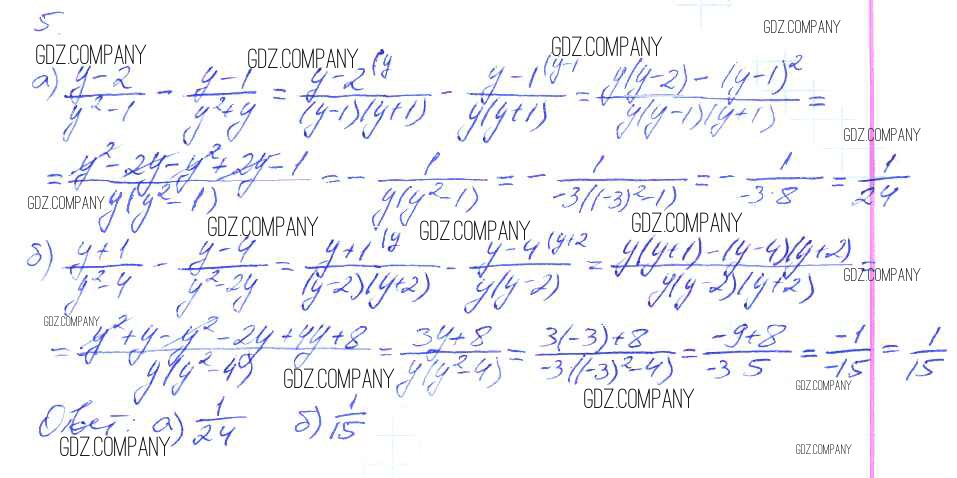 5.
GDZ.COMPANY GDZ.COMPANY GDZ.COMPANY GDZ.COMPANY
а) (y-2)/(y²-1) - (y-1)/(y²+y) = (y-2 (y)/((y-1)(y+1)) - (y-1 (y-1)/(y(y+1)) = (y(y-2)-(y-1)²)/(y(y-1)(y+1)) =
GDZ.COMPANY
= (y²-2y-y²+2y-1)/(y(y²-1)) = - 1/(y(y²-1)) = - 1/(-3((-3)²-1)) = - 1/(-3·8) = 1/24
GDZ.COMPANY GDZ.COMPANY GDZ.COMPANY GDZ.COMPANY
б) (y+1)/(y²-4) - (y-4)/(y²-2y) = (y+1 (y)/((y-2)(y+2)) - (y-4 (y+2)/(y(y-2)) = (y(y+1)-(y-4)(y+2))/(y(y-2)(y+2)) =
GDZ.COMPANY
GDZ.COMPANY
= (y²+y-y²-2y+4y+8)/(y(y²-4)) = (3y+8)/(y(y²-4)) = (3(-3)+8)/(-3((-3)²-4)) = (-9+8)/(-3·5) = -1/-15 = 1/15
GDZ.COMPANY GDZ.COMPANY GDZ.COMPANY
Ответ: а) 1/24 б) 1/15
GDZ.COMPANY GDZ.COMPANY